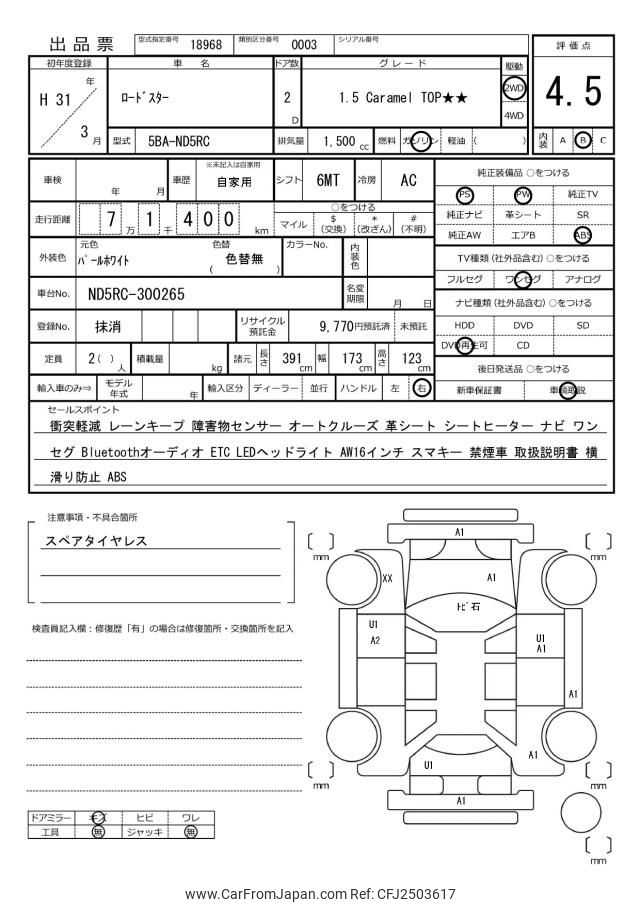 出品票 型式指定番号 18968 類別区分番号 0003 シリアル番号 評価点
初年度登録 車名 ドア数 グレード 駆動 4.5
H 31 年 3 月 ﾛｰﾄﾞｽﾀｰ 2 D 1.5 Caramel TOP★★ 2WD 4WD
型式 5BA-ND5RC 排気量 1,500 cc 燃料 ガソリン 軽油 ( ) 内装 A B C
車検 年 月 車歴 ※未記入は自家用 自家用 シフト 6MT 冷房 AC
純正装備品 ○をつける
PS PW 純正TV
走行距離 7 1 4 0 0 万 千 km ○をつける マイル $(交換) *(改ざん) #(不明)
純正ナビ 革シート SR
純正AW エアB ABS
外装色 元色 ﾊﾟｰﾙﾎﾜｲﾄ 色替 ( 色替無 ) カラーNo. 内装色
TV種類 (社外品含む) ○をつける
フルセグ ワンセグ アナログ
車台No. ND5RC-300265 名変期限 月 日
ナビ種類 (社外品含む) ○をつける
登録No. 抹消 リサイクル預託金 9,770円預託済 未預託
HDD DVD SD
DVD再生可 CD
定員 2( )人 積載量 kg 諸元 長さ 391 cm 幅 173 cm 高さ 123 cm
後日発送品 ○をつける
輸入車のみ⇒ モデル年式 年 輸入区分 ディーラー 並行 ハンドル 左 右
新車保証書 車輌取説
セールスポイント
衝突軽減 レーンキープ 障害物センサー オートクルーズ 革シート シートヒーター ナビ ワン
セグ Bluetoothオーディオ ETC LEDヘッドライト AW16インチ スマキー 禁煙車 取扱説明書 横
滑り防止 ABS
注意事項・不具合箇所
スペアタイヤレス
検査員記入欄：修復歴「有」の場合は修復箇所・交換箇所を記入
A1
mm mm
XX A1
ﾄﾋﾞ石
U1 U1
A2 A1
A1
A1
U1
mm mm
A1
mm
ドアミラー キズ ヒビ ワレ
工具 無 ジャッキ 無
www.CarFromJapan.com Ref: CFJ2503617